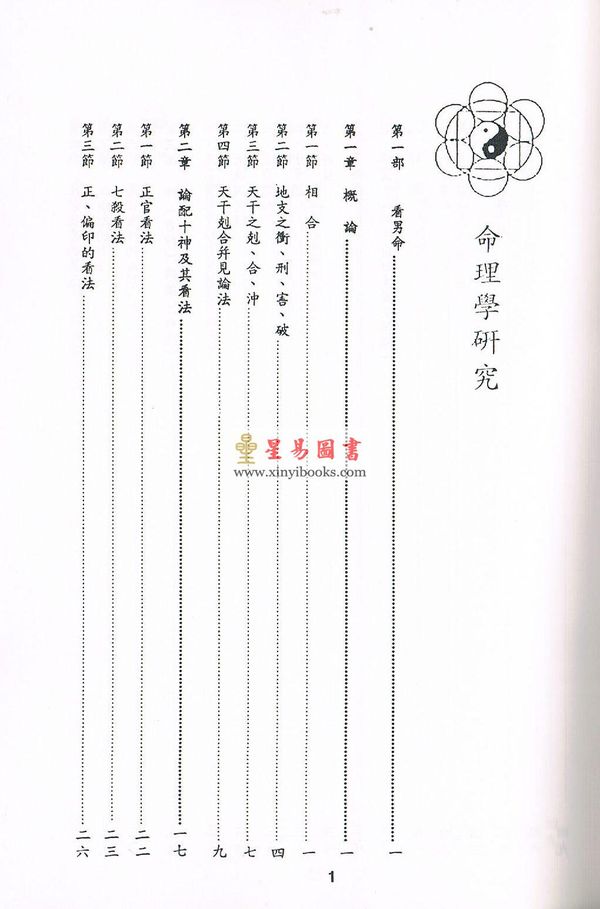 命理學研究
第一部 看男命 一
第一章 概論 一
第一節 相合 一
第二節 地支之衝、刑、害、破 四
第三節 天干之剋、合、沖 七
第四節 天干剋合并見論法 九
第二章 論配十神及其看法 一七
第一節 正官看法 二二
第二節 七殺看法 二三
第三節 正、偏印的看法 二六
星易圖書
www.xinyibooks.com
1